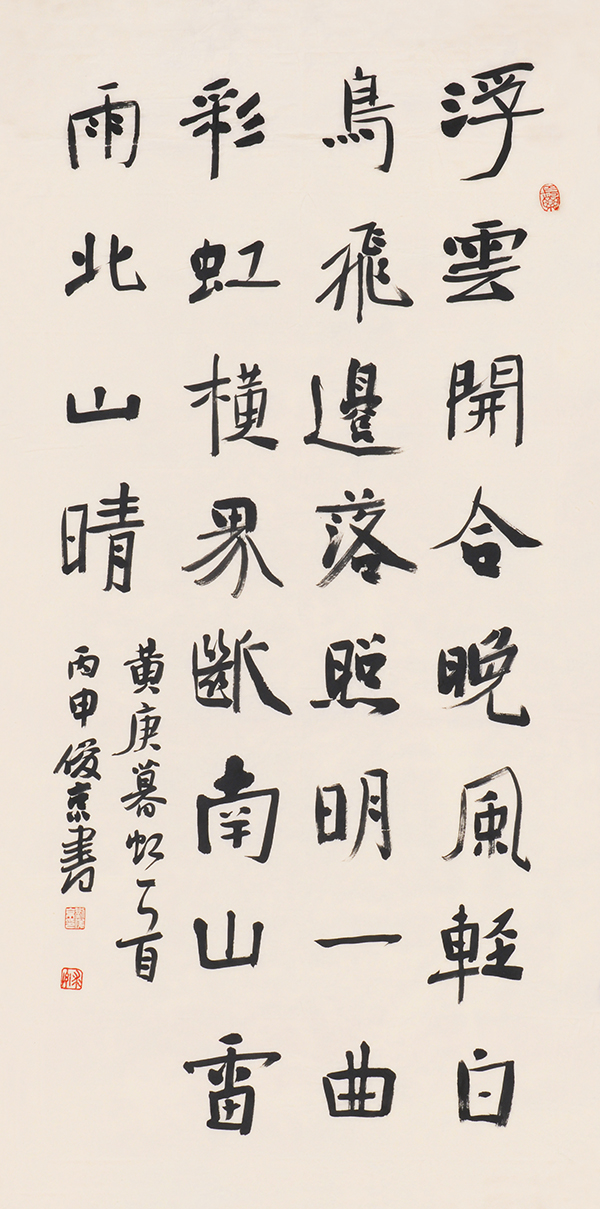 浮雲開合晚風輕白
鳥飛邊落照明一曲
彩虹横界斷南山雷
雨北山晴
黄庚暮虹一首
丙申俊京書